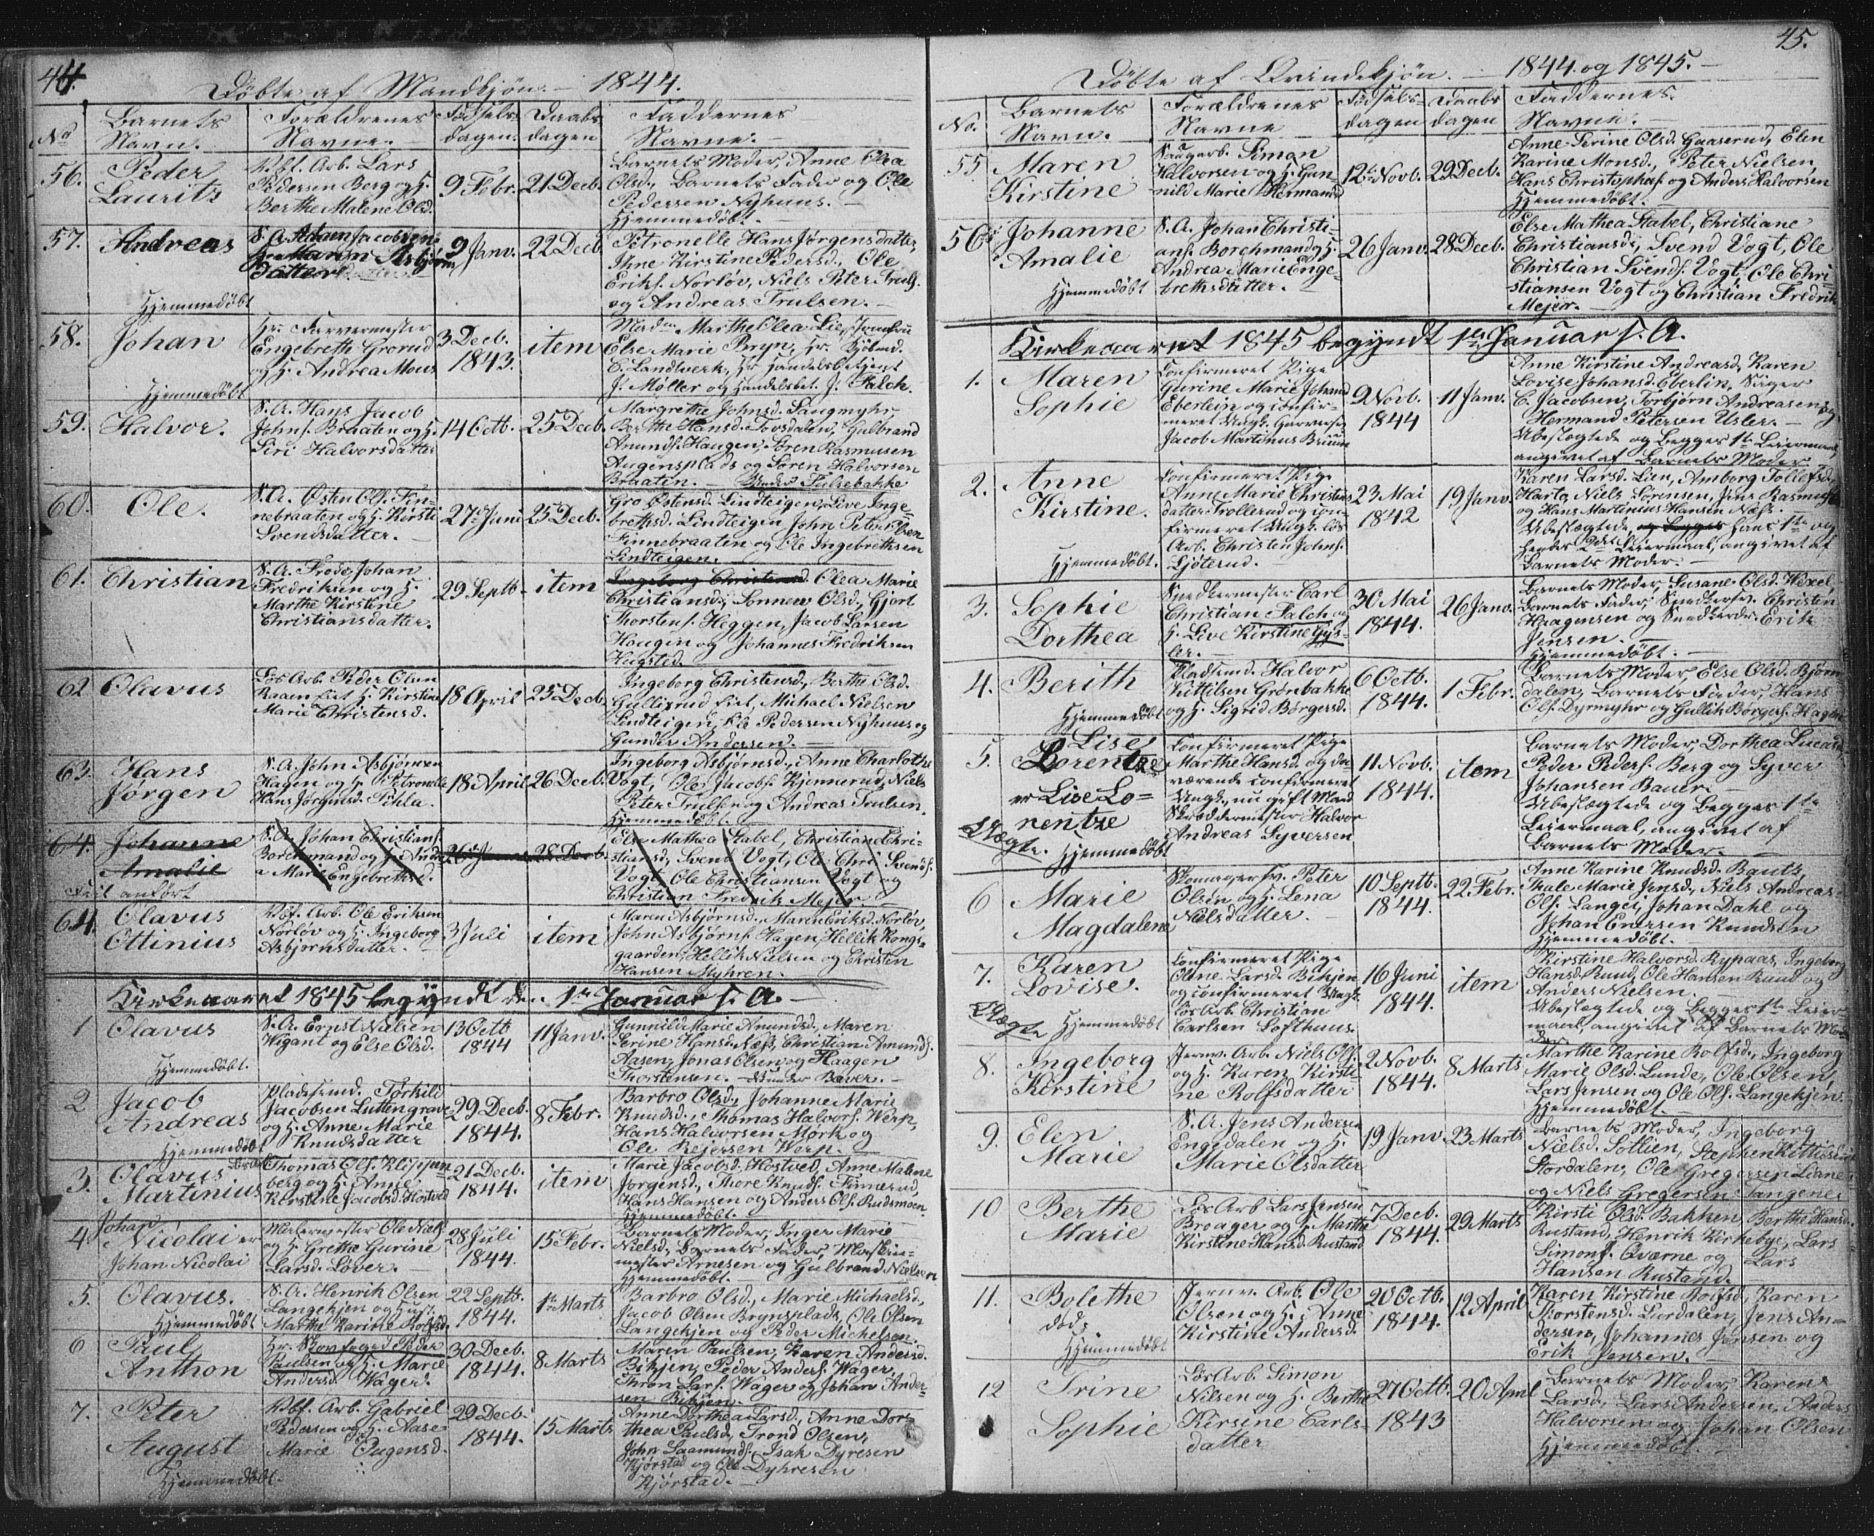 44.
Døbte af Mandkjøn. — 1844.
No
Barnets Navn.
Forældrenes Navne.
Fødselsdagen.
Daabsdagen
Faddernes Navne.
56.
Peder Laurits
Arb. Lars
Pedersen Berg og H.
Berthe Malene Olsd.
9 Febr.
21 Decb.
Barnets Moder, Anne Olea
Olsd., Barnets Fader og Ole
Pedersen Nyhuus.
Hjemmedøbt.
57.
Andreas
Hjemmedøbt
S. A. Jacobsen
Maren Asbjørns
datter
9 Janv.
22 Decb.
Petronelle Hans Jørgensdatter,
Ane Kirstine Pedersd., Ole
Eriks. Norløv, Niels Peter Truls.
og Andreas Trulsen. —
58.
Johan
Hjemmedøbt
Hr. Farvermester
Engebreth Grorud
og H. Andrea Mons
3 Decb.
1843.
item
Madm Marthe Olea Lie, Jomfru
Else Marie Bryn, Hr.
C. Landwerk, Hr. Handelsbetjent
J. Møller og Handelsbet. J. Falch.
59.
Halvor.
S. A. Hans Jacob
Johns. Braaten og H.
Siri Halvorsdatter
14 Octb.
25 Decb.
Margrethe Johnsd. Saugmyhr
Berthe Hansd. Tovsdalen, Gulbrand
Amunds. Haugen, Søren Rasmusen
Augensplads og Søren Halvorsen
Braaten. —
60.
Ole.
S. A. Østen Ols. Fin-
nebraaten og H. Kirsti
Svendsdatter. —
27 Juni
25 Decb.
Gro Østensd. Lindteigen, Live Inge-
brethsd. Lindteigen, John Peters.
Finnebraaten og Ole Ingebrethsen
Lindteigen. —
61.
Christian
S. A. Frods Johan
Fredriksen og H.
Marthe Kirstine
Christiansdatter.
29 Septb.
item
Ingeborg Christensd. Olea Marie
Christiansd., Sønnew Olsd., Gjort
Thorstens. Heggen, Jacob Larsen
Haugen og Johannes Fredriksen
62
Olavus
Løs Arb. Peder Olsen
Raaen og H. Kirstine
Marie Christensd.
18 April
25 Decb.
Ingeborg Christensd., Berthe Olsd.
Gullixrud, Michael Nielsen
Lindteigen, Ole Pedersen Nyhuus og
Gunder Andersen. —
63.
Hans Jørgen
S. A. John Asbjørnsen
Hagen og H. Petronelle
Hans Jørgensd. Pihla.
18 April
26 Decb.
Ingeborg Asbjørnsd., Anne Charlotte
Vogt, Ole Jacobs. Kjennerud, Niels
Peter Trulsen og Andreas Trulsen.
Hjemmedøbt.
64.
Johanne Amalie
Feil anført
S. A. Johan Christians.
Borchmand og H. Andre
a Marie Engebrethsd.
26 Janv
28 Decb.
Else Mathea Stabel, Christiane Chri-
stiansd., Svend Vogt, Ole Chri. Svends.
Vogt, Ole Christiansen Vogt og
Christian Fredrik Mejer.
64.
Olavus Ottinius
Arb. Ole Eriksen
Norløv og H. Ingeborg
Asbjørnsdatter.
3 Juli
item
Maren Asbjørnsd., Maren Eriksd. Norløv,
John Asbjørns. Hagen, Hellik Kongs-
gaarden, Hellik Nielsen og Christen
Hansen Myhren.
Kirkeaaret 1845 begyndt den 1te Januar s. A. —
1
Olavus
Hjemmedøbt.
S. A. Ernst Nielsen
Wigant og Else Olsd.
13 Octb
1844
11 Janv.
Gunnild Marie Amundsd., Maren
Serine Hansd. Næss, Christian Amunds.
Aasen, Jonas Olsen og Haagen
Thorstensen.
2
Jacob Andreas
Hjemmedøbt
Pladsmd. Torkild
Jacobsen Luttengrave
og H. Anne Marie
Knudsdatter
29 Decb.
1844.
8 Febr.
Barbro Olsd., Johanne Marie
Knudsd., Thomas Halvors. Werp,
Hans Halvorsen Mørk og
Ole Rejersen Werp. —
3.
Olavus Martinius
Thomas Ols. Klippen-
berg og H. Anne
Kirstine Jacobsd. Hostved
21 Decb.
1844.
item
Marie Jacobsd. Hostved, Anne Malene
Jørgensd., Thore Knuds. Tinnerud,
Hans Hansen og Anders Ols. Rudsmoen
Hjemmedøbt.
4
Johan
Nicolai er
Johan Nicolai
Malermester Ole Næss
og H. Grethe Gurine
Larsd. Løver. —
28 Juli
1844.
15 Febr.
Barnets Moder, Inger Marie
Nielsd., Barnets Fader, Maskin-
mester Arnesen og Gulbrand Nielsen
Hjemmedøbt.
5.
Olavus.
Hjemmedøbt
S. A. Henrik Olsen
Langekjen og Hust.
Marthe Karine Rolfsd.
22 Septb.
1844.
1te Marts
Barbro Olsd., Marie Michaelsd.,
Jacob Olsen Brynsplads, Ole Olsen
Langekjen og Peder Michelsen.
6
Paul Anthon
Hr. Skovfoged Peder
Paulsen og H. Marie
Andersd. Wager.
30 Decb.
1844.
8 Marts
Maren Paulsen, Karen Andersd.
Bikjen, Peder Anders. Wager,
Thron Lars. Wager og Johan Ander-
sen Bikjen.
7.
Peter August
Hjemmedøbt.
Arb. Gabriel
Pedersen og H. Aase
Marie Pagensd.
29 Decb.
1844.
15 Marts
Anne Dorthea Larsd., Anne Dor-
thea Paulsd., Trond Olsen,
John Saamunds., Isak Dyresen
Kjørstad og Ole Dyhresen
Kjørstad. —
45.
Døbte af Qvindekjøn. — 1844 og 1845. —
No.
Barnets Navn.
Forældrenes Navne
Fødselsdagen
Daabsdagen
Faddernes Navne. —
55
Maren Kirstine
Saugarb. Simon
Halvorsen og H. Gun-
nild Marie Hermansd
12te Novb.
29 Decb.
Anne Serine Olsd. Gaaserud, Elen
Karine Monsd., Peter Nielsen,
Hans Christophs. og Anders Halvorsen
Hjemmedøbt.
56
Johanne Amalie
Hjemmedøbt
S. A. Johan Christi-
ans. Borchmand og H.
Andrea Marie Enge-
brethsdatter. —
26 Janv.
28 Decb.
Else Mathea Stabel, Christiane
Christiansd., Svend Vogt, Ole
Christian Svends. Vogt, Ole Chri-
stiansen Vogt og Christian Fredrik
Mejer. —
Kirkeaaret 1845 begyndt 1te Januar s. A.
1.
Maren Sophie
Confirmeret Pige
Gurine Marie Johansd
Eberlein og confir-
meret Ungk. Garversv.
Jacob Martinus Bruun
9 Novb.
1844
11 Janv.
Anne Kirstine Andreasd., Karen
Lovise Johansd. Eberlin, Suger
C. Jacobsen, Torbjørn Andreasen og
Hermand Petersen Uster. —
Ubeslægtede og begges 1te Leiermaal
angivet af Barnets Moder
2.
Anne Kirstine.
Hjemmedøbt.
Confirmeret Pige
Anne Marie Christens
datter Trollerud og con-
firmeret Ungk. løs
Arb. Christen Johns.
Sjøterud. —
23 Mai
1842
19 Janv.
Karen Larsd. Lien, Amborg Tollefsd.
Harta, Niels Sørensen, Jens Rasmusen
og Hans Martinius Hansen Næss.
Ubeslægtede og begges hans 1te og
hendes 2det Leiermaal, angivet af
Barnets Moder. —
3.
Sophie Dorthea
Snedkermester Carl
Christian Falch og
H. Live Kirstine Gjs-
ler. —
30 Mai
1844.
26 Janv.
Barnets Moder, Susane Olsd. Hexel,
Barnets Fader, Snedkersv. Christen
Haagensen og Snedkerdr. Erik
Jensen. —
Hjemmedøbt. —
4.
Berith
Hjemmedøbt
Pladsmd. Halvor
Kittilsen Grønbakke
og H. Sigrid Børgersd.
6 Octb.
1844.
1 Febr.
Barnets Moder, Else Olsd. Bjørn-
dalen, Barnets Fader, Hans
Ols. Dyrmyhr og Gullik Børgers. Hagen
5.
Lise
Lorentze
er Lise Lo-
rentze
Uægte.
Hjemmedøbt
Confirmeret Pige
Marthe Hansd. og da-
værende confirmeret
Ungk., nu gift Mand
Skræddermester Halvor
Andreas Syversen
11 Novb.
1844.
item
Barnets Moder, Dorthea Lucasd.,
Peder Peders. Berg og Syver
Johansen Bauer.
Ubeslægtede og begges 1te
Leiermaal, angivet af
Barnets Moder. —
6
Marie Magdalena
Skomagersv. Peter
Olsen, og H. Lena
Nielsdatter. —
10 Septb.
1844.
22 Febr.
Anne Karine Knudsd. Bauts,
Thale Marie Jensd., Niels Andreas
Ols. Langei, Johan Dahl og
Johan Evensen Knudsen
Hjemmedøbt.
7.
Karen Lovise.
Uægte
Hjemmedøbt
Confirmeret Pige
Anne Larsd. Bikjen
og confirmeret Ungk.
Løs Arb. Christian
Carlsen Lofthuus.
16 Juni
1844.
item
Kirstine Halvorsd. Ryhaas, Ingeborg
Hansd. Ruud, Ole Hansen Ruud og
Anders Nielsen. —
Ubeslægtede og begges 1te Leier-
maal, angivet af Barnets Mo-
der.
8.
Ingeborg Kirstine
Jernv. Arb. Niels Ols.
og H. Karen Kirsti-
ne Rolfsdatter
2 Novb.
1844.
8 Marts
Marthe Karine Rolfsd., Ingeborg
Marie Olsd. Lunde, Ole Olsen,
Lars Jensen og Ole Ols. Langekjen
Hjemmedøbt. —
9.
Elen Marie
S. A. Jens Andersen
Engsdalen og H.
Marie Olsdatter
19 Janv.
23 Marts
Barnets Moder, Ingeborg
Nielsd. Sollien, Stephen Kittilsen
Stordalen, Ole Gregersen Liane
og Niels Gregersen Sangene.
10
Berthe Marie
Løs Arb Lars Jensen
Broager og H. Marthe
Kirstine Hansd. Rustand
7 Decb.
1844.
29 Marts
Kirsti Olsd. Bakken, Berthe Hansd.
Rustand, Henrik Kirkebye, Lars
Simons. Qværne og Lars
Hansen Rustand.
11.
Bolethe
død.
Hjemmedøbt
Jernv. Arb. Ole
Olsen og H. Anne
Kirstine Andersd.
20 Octb.
1844.
12 April
Karen Kirstine Rolfsd., Karen
Thorstensd. Lurdalen, Jens An-
dersen, Johannes Jensen og
Erik Jensen.
12
Trine Sophie
Løs Arb. Simon
Nilsen og H. Berthe
Kirsine Carls-
datter
27 Octb.
1843
20 Apil
Barnets Moder, Karen
Larsd., Lars Andersen, Anders
Halvorsen og Johan Olsen
Hjemmedøbt.